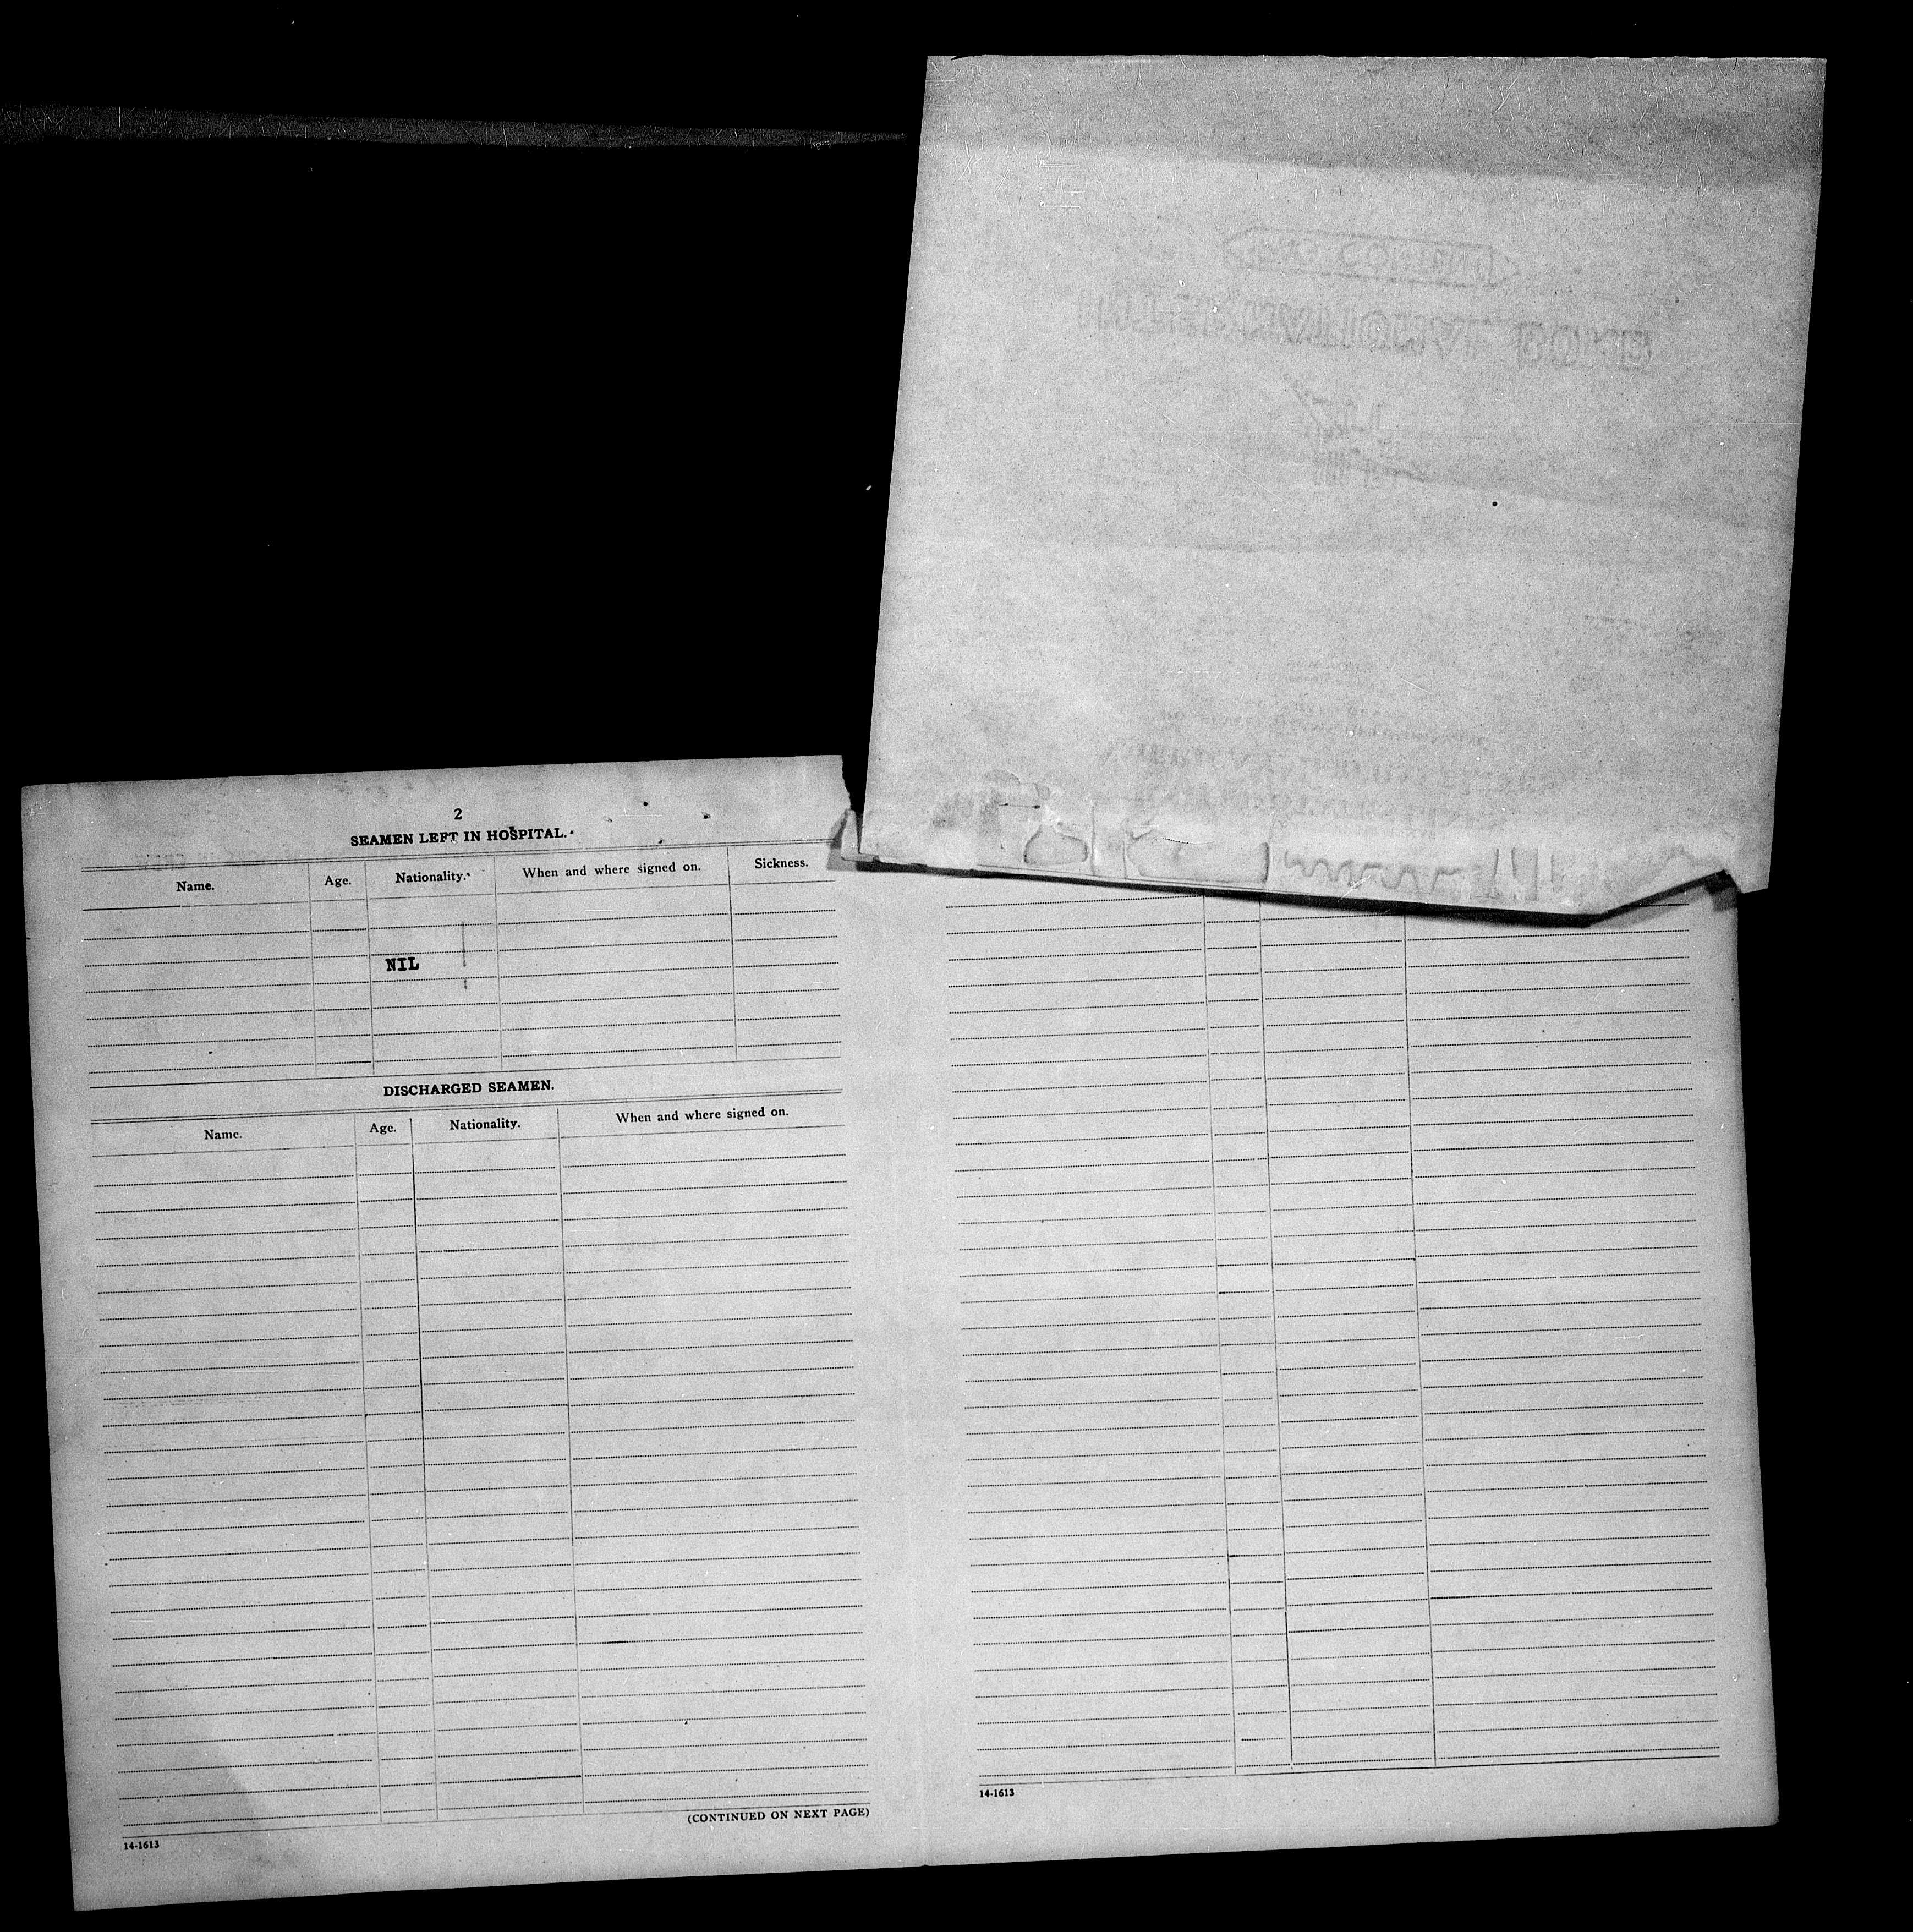 2
SEAMEN LEFT IN HOSPITAL.
Name. Age. Nationality. When and where signed on. Sickness.
NIL
DISCHARGED SEAMEN.
Name. Age. Nationality. When and where signed on.
(CONTINUED ON NEXT PAGE)
14-1613
14-1613